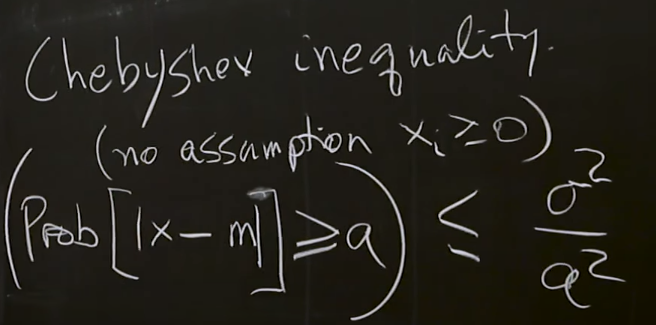 Chebyshev inequality.
(no assumption xᵢ ≥ 0)
(Prob [|x - m|] ≥ a) ≤ σ²/a²